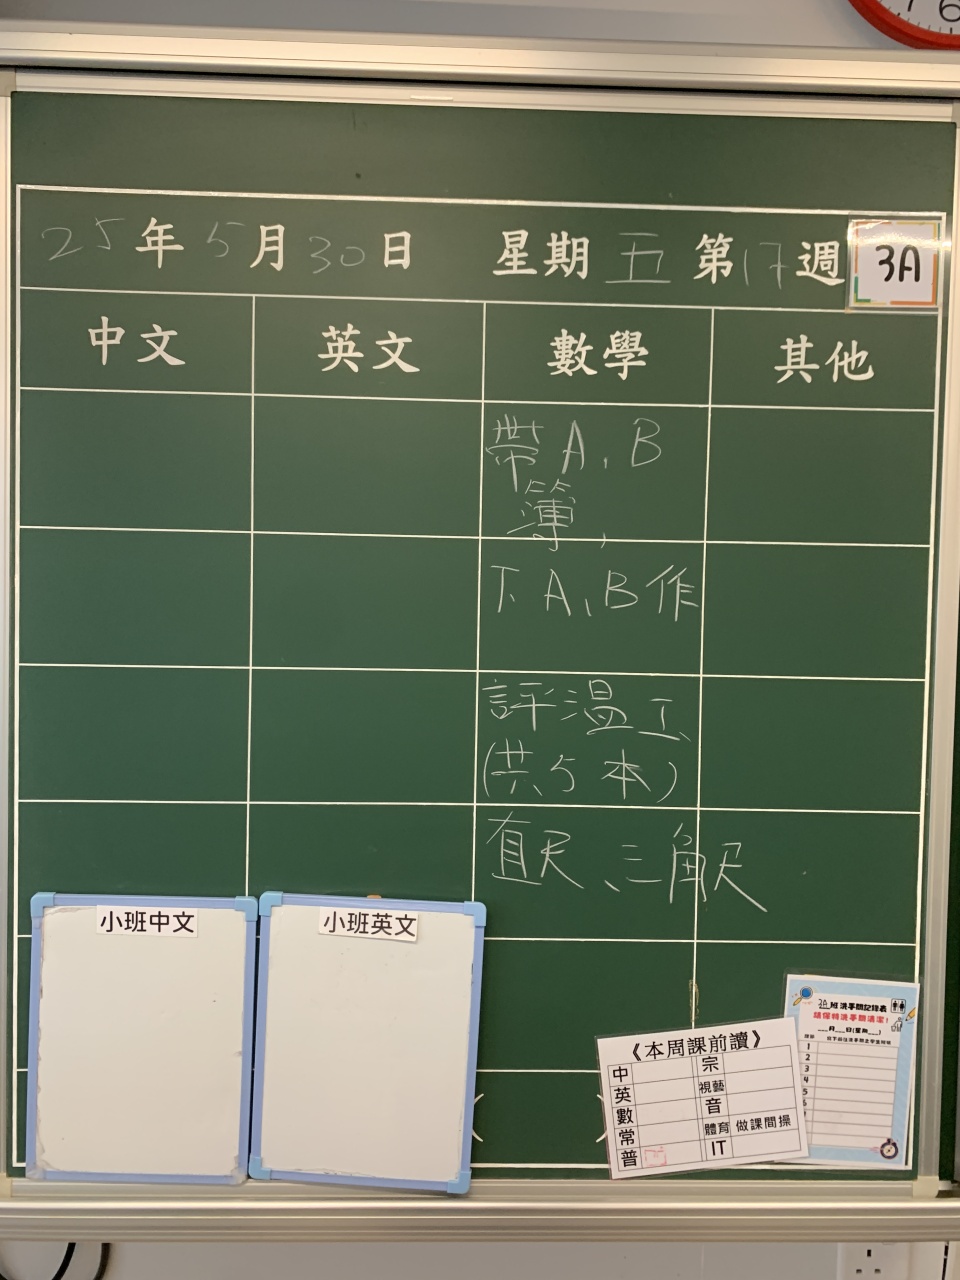 7 6
25年5月30日 星期五 第17週 3A
中文 英文 數學 其他
帶A、B
簿,
下A、B作
評溫工
(共5本)
直尺、三角尺
小班中文 小班英文
( )
《本周課前讀》
中 宗
英 視藝
數 音
常 體育 做課間操
普 IT
3A班洗手間記錄表
請保持洗手間清潔!
___月___日(星期___)
1
2
3
4
5
6